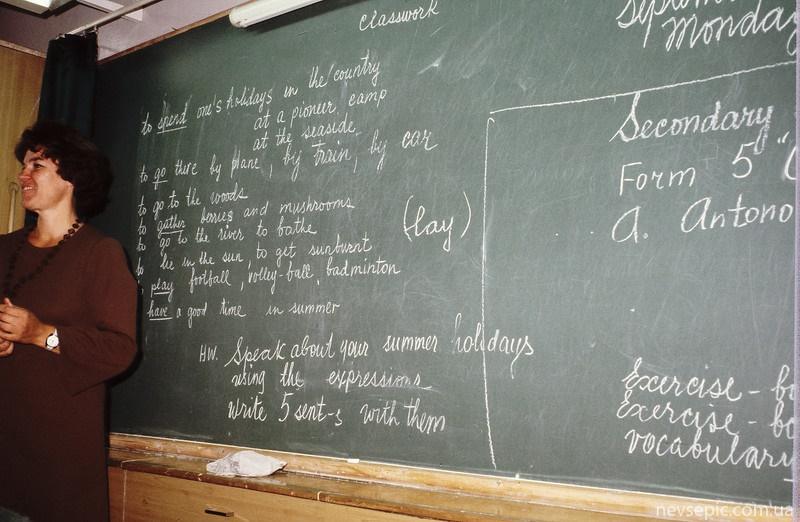 classwork
to spend one's holidays in the country
at a pioneer camp
at the seaside
to go there by plane, by train, by car
to go to the woods
to gather berries and mushrooms
to go to the river to bathe
to lie in the sun, to get sunburnt
(lay)
play football, volley-ball, badminton
have a good time in summer
HW. Speak about your summer holidays
using the expressions
write 5 sent-s with them
Monday
Secondary
Form 5
A. Antono
Exercise - bo
Exercise - bo
vocabulary
nevsepic.com.ua